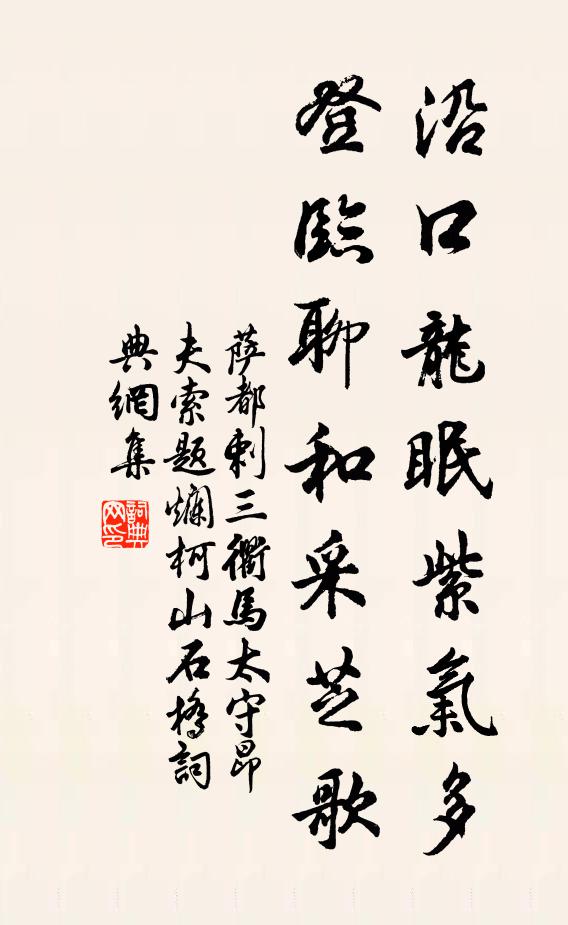 沿口龍眠紫氣多
登臨聊和采芝歌
萨都剌三衢馬太守昂
夫索题爛柯山石橋詞
典網集
詞典网印